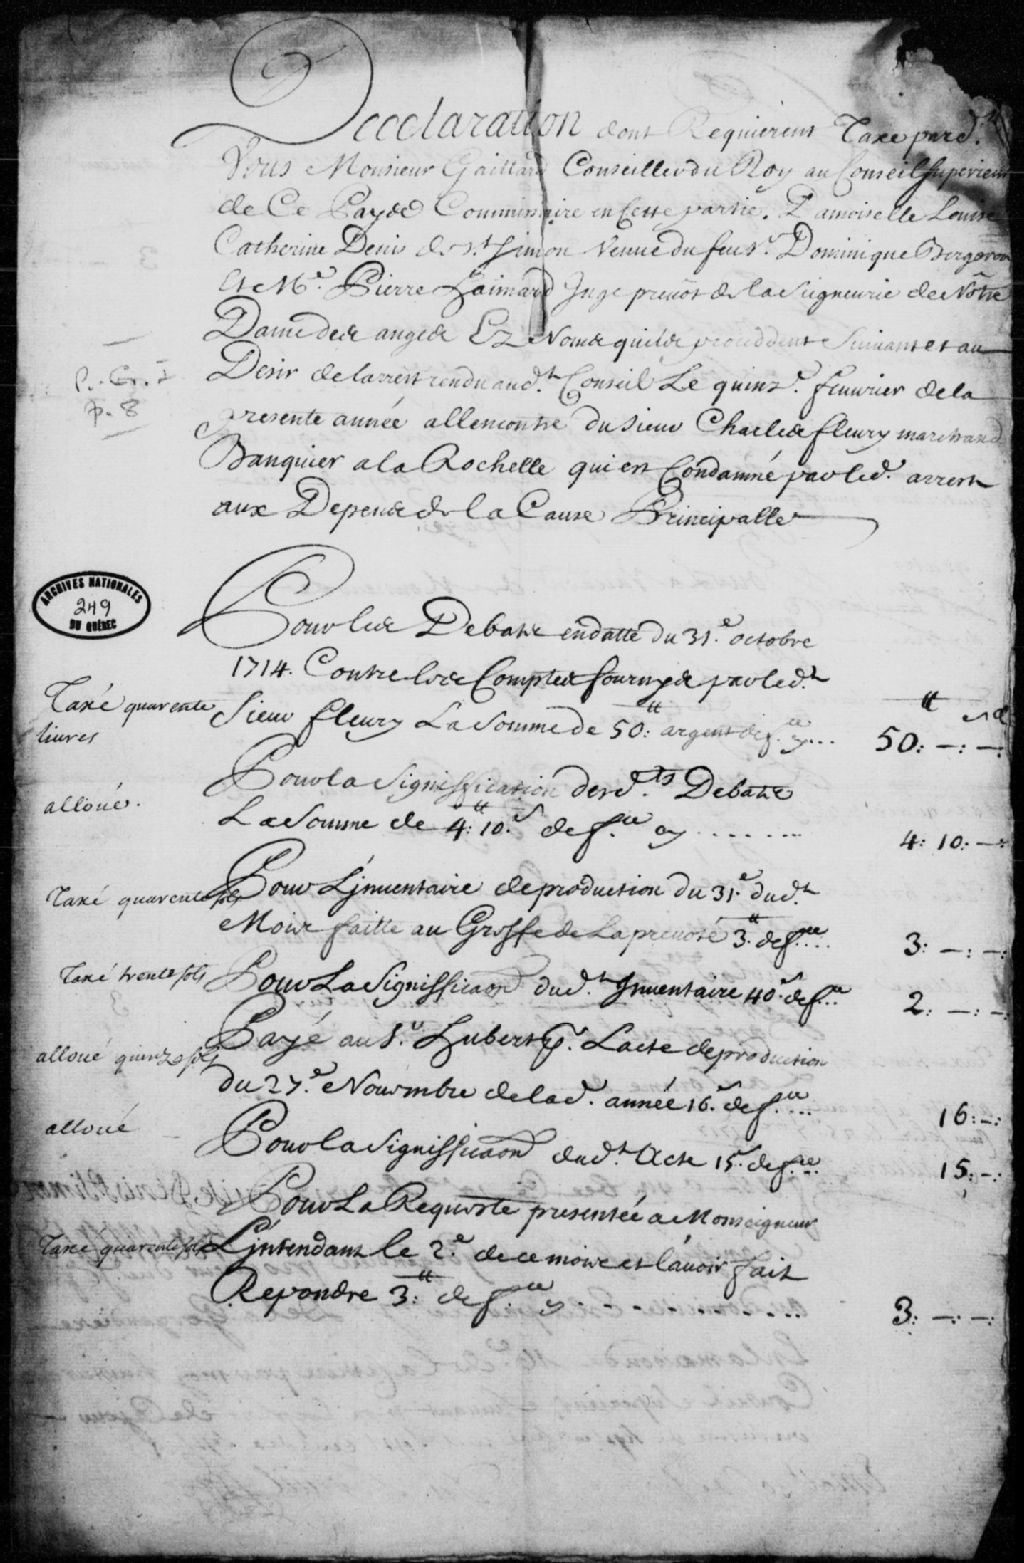 Decclaration dont Requierent Taxe pard.t
Vous Monsieur Gaillard Conseiller du Roy au Conseil Superieur
de Ce Payes Commissaire en Cette partie. Damoiselle Louise
Catherine Denis de St. Simon Veuve du feu Sr. Dominique Bergeron
et Me. Pierre Haimard Juge prevost de la Seigneurie de Nôtre
Dame des anges Ez Noms quils proceddent Suivant et au
Desir de larrest rendu aud.t Conseil Le quinze. feuvrier de la
P. G. I
p. 8
presente année allencontre du Sieur Charles fleury marchand
Banquier a la Rochelle qui est Condamné par led. arrest
aux Depens de la Cause Principalle
ARCHIVES NATIONALES
249
DU QUÉBEC
Pour les Debats en datte du 31.e octobre
1714. Contre les Comptes fournys par led.t
Taxé quarente livres
Sieur fleury La Somme de 50.tt argent de f.ce ... 50: —: —:
Pour la Signiffication desd.ts Debats
alloué.
La Somme de 4.tt 10.s de f.ce ....... 4: 10: —:
Taxé quarente sols
Pour L'inventaire de production du 31.e dud.t
Mois faitte au Greffe de La prevosté 3.tt de f.ce ... 3: —: —:
Taxé trente sols
Pour La Signifficaon dud.t Inventaire 40.s de f.ce 2: —: —:
alloué quinze sols
Payé au Sr. Hubert pr. Lacte de production
du 27.e Novembre de lad. année 16.s de f.ce ... 16: —:
alloué
Pour la Signifficaon dud.t Acte 15.s de f.ce ... 15: —:
Pour La Requeste presentée a Monseigneur
Taxé quarente sols
L'intendant le 2.e de ce mois et l'avoir fait
Repondre 3.tt de f.ce ........ 3: —: —: